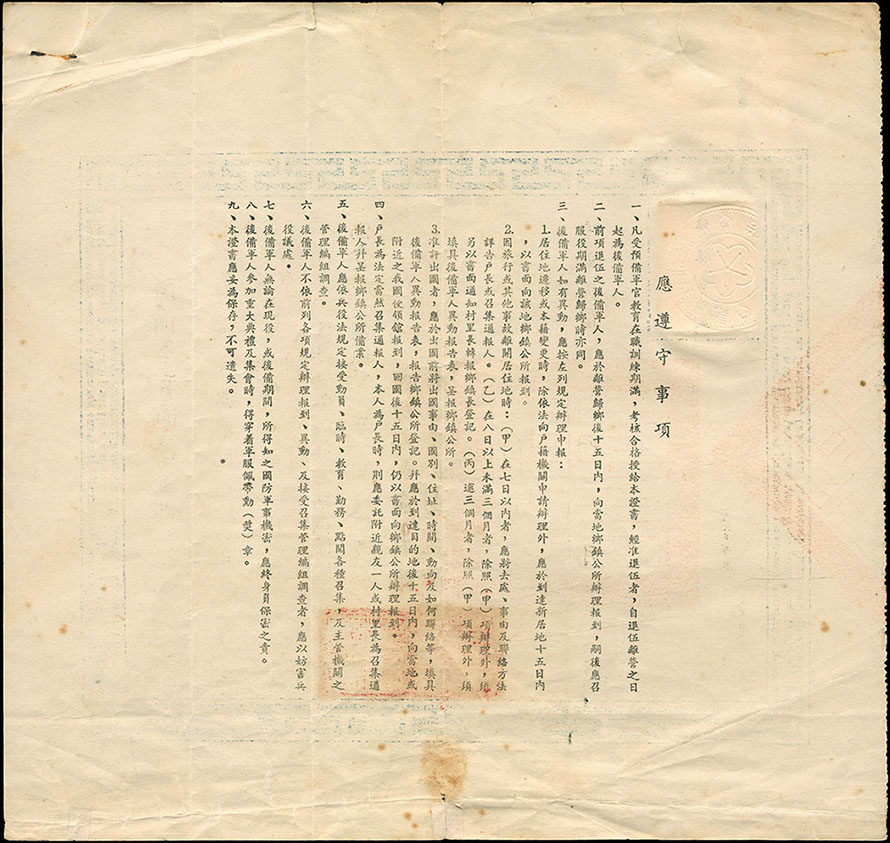 應遵守事項
一、凡受預備軍官教育在職訓練期滿，考核合格授給本證書，經准退伍者，自退伍離營之日
起為後備軍人。
二、前項退伍之後備軍人，應於離營歸鄉後十五日內，向當地鄉鎮公所辦理報到，嗣後應召
服役期滿離營歸鄉時亦同。
三、後備軍人如有異動，應按左列規定辦理申報：
1.居住地遷移或本籍變更時，除依法向戶籍機關申請辦理外，應於到達新居地十五日內
，以書面向該地鄉鎮公所報到。
2.因旅行或其他事故離開居住地時：（甲）在七日以內者，應將去處、事由及聯絡方法
詳告戶長或召集通報人。（乙）在八日以上未滿三個月者，除照（甲）項辦理外，須
另以書面通知村里長轉報鄉鎮長登記。（丙）逾三個月者，除照（甲）項辦理外，須
填具後備軍人異動報告表，呈報鄉鎮公所。
3.准許出國者，應於出國前將出國事由、國別、住址、時間、動向及如何聯絡等，填具
後備軍人異動報告表，報告鄉鎮公所登記。并應於到達目的地後十五日內，向當地或
附近之我國使領舘報到，回國後十五日內，仍以書面向鄉鎮公所辦理報到。
四、戶長為法定當然召集通報人，本人為戶長時，則應委託附近親友一人或村里長為召集通
報人并呈報鄉鎮公所備案。
五、後備軍人應依兵役法規定接受動員、臨時、教育、勤務、點閱各種召集，及主管機關之
管理編組調查。
六、後備軍人不依前列各項規定辦理報到、異動、及接受召集管理編組調查者，應以妨害兵
役議處。
七、後備軍人無論在現役，或後備期間，所得知之國防軍事機密，應終身負保密之責。
八、後備軍人參加重大典禮及集會時，得穿着軍服佩帶勳（獎）章。
九、本證書應妥為保存，不可遺失。